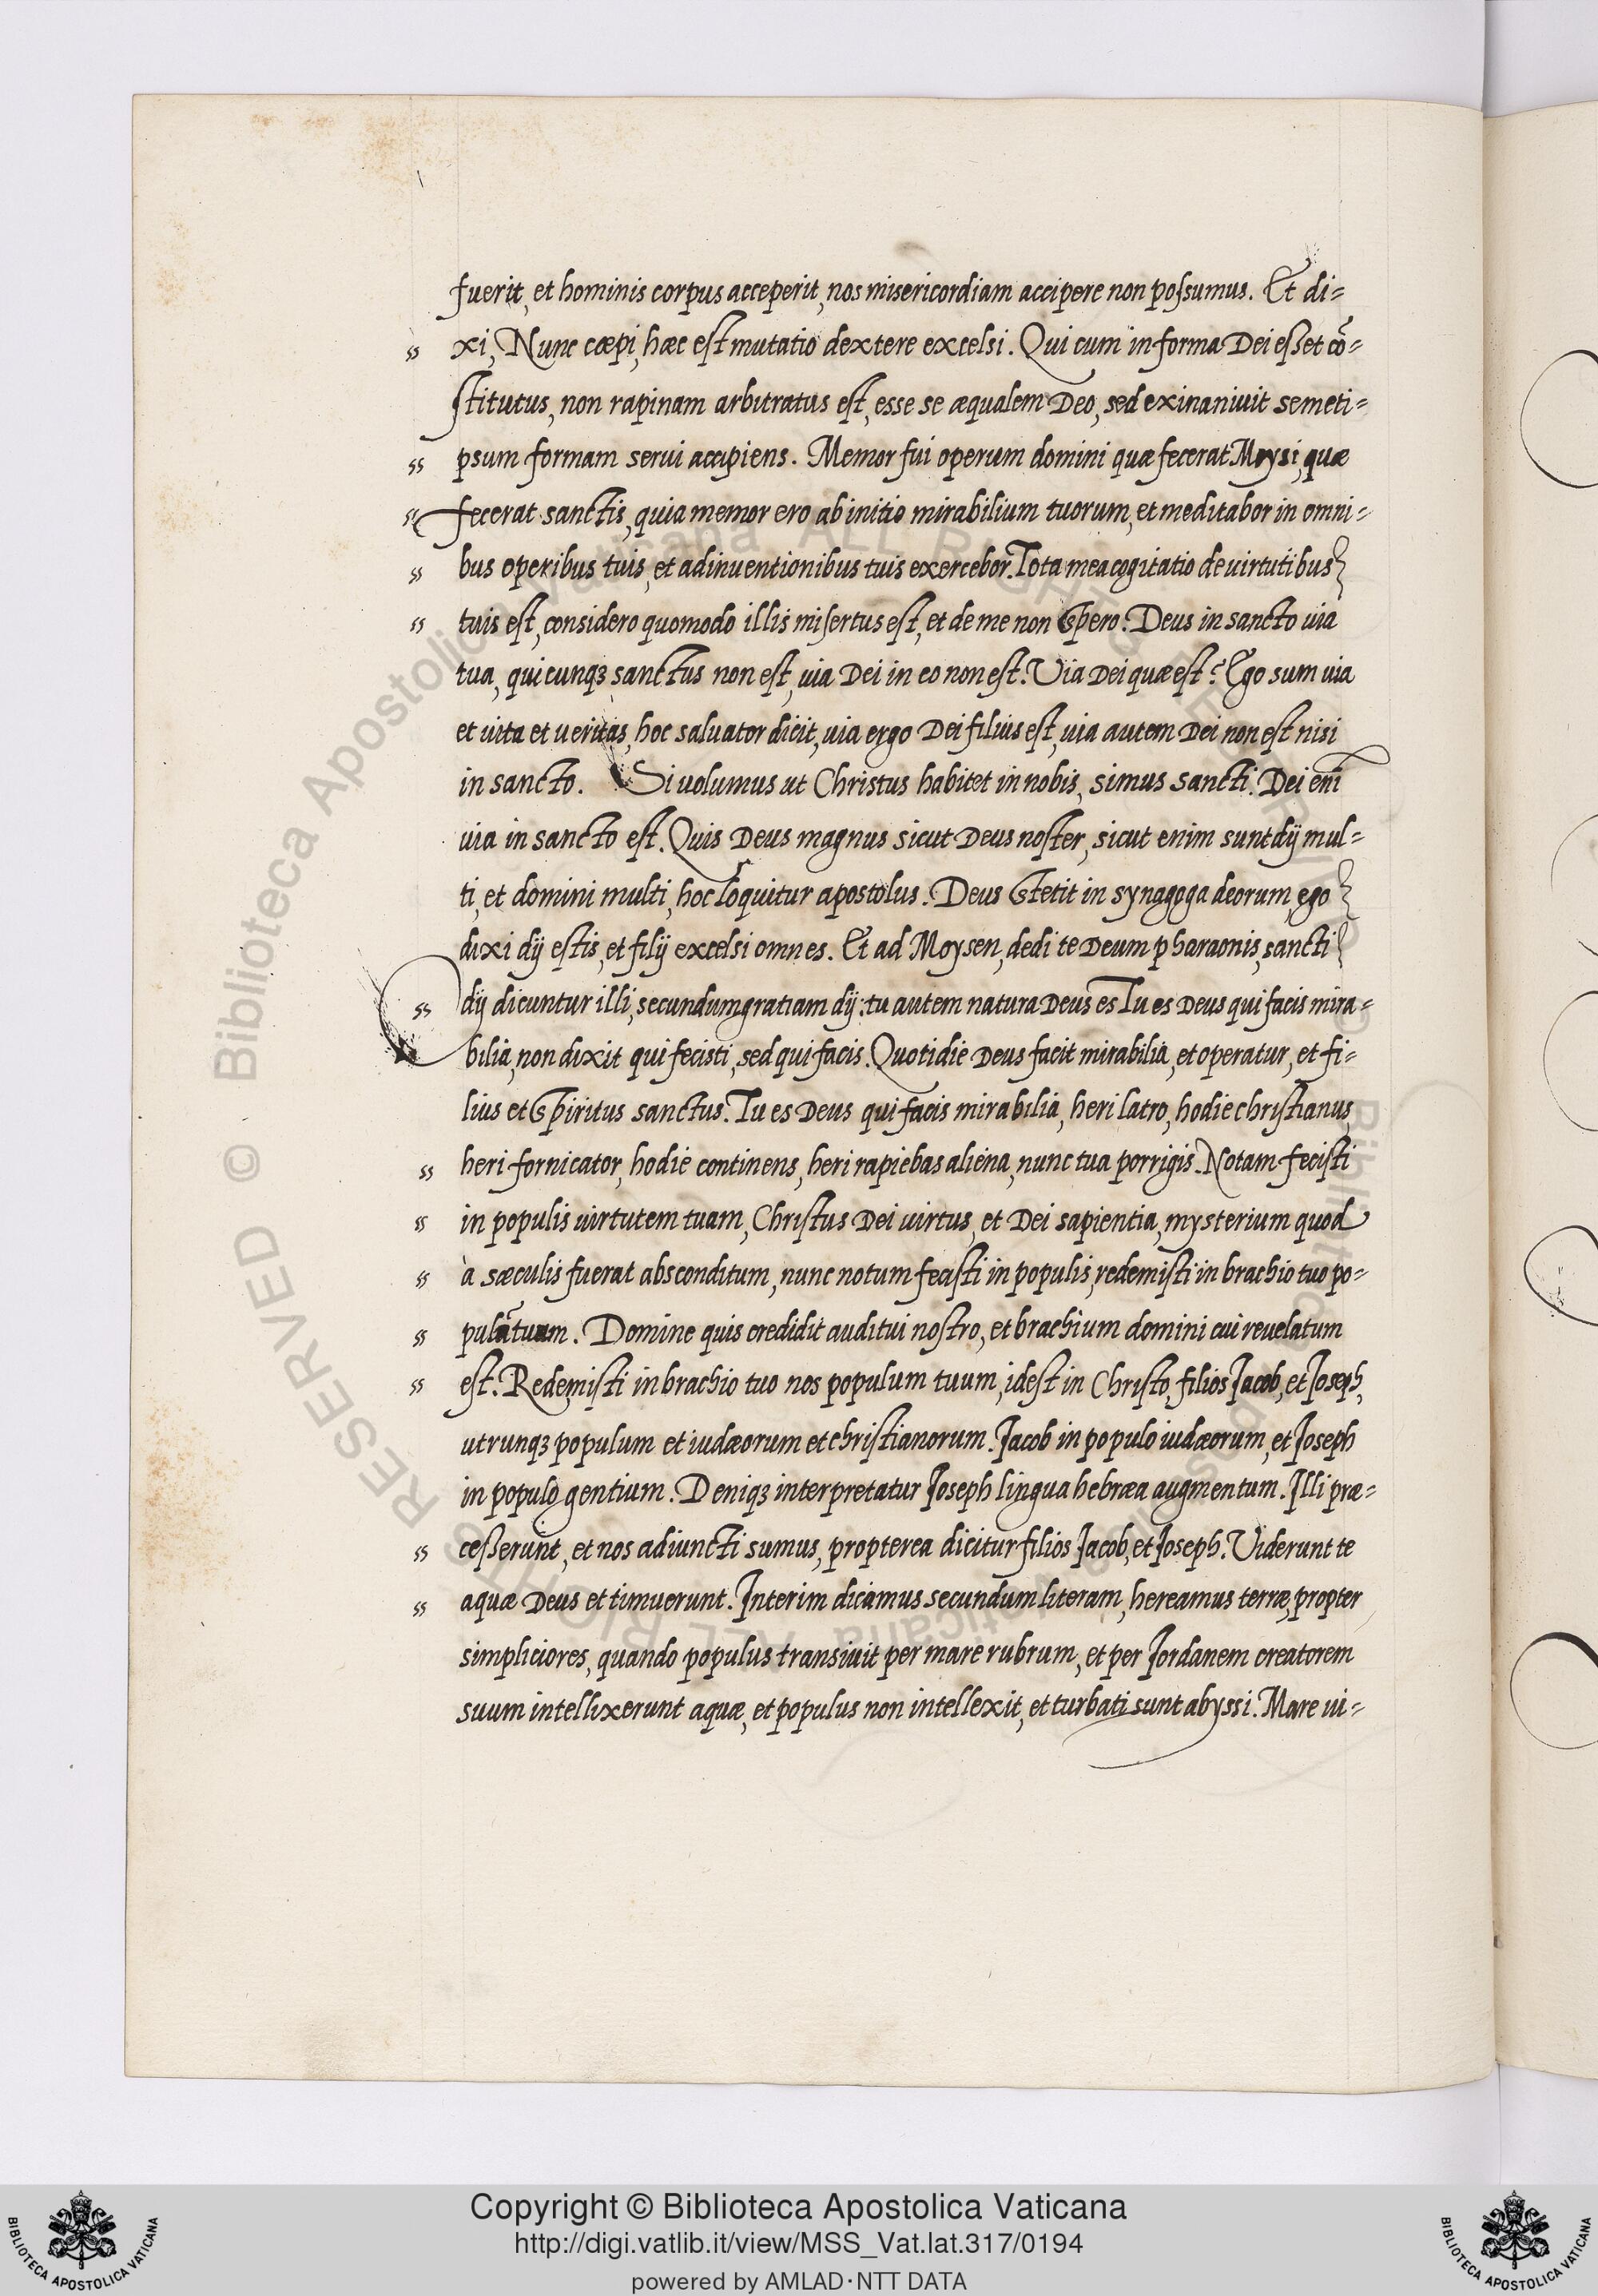 fuerit, et hominis corpus acceperit, nos misericordiam accipere non possumus. Et di=
„ xi, Nunc cæpi, hæc est mutatio dextere excelsi. Qui cum in forma Dei esset cō=
stitutus, non rapinam arbitratus est, esse se æqualem Deo, sed exinaniuit semeti=
„ psum formam serui accipiens. Memor fui operum domini quæ fecerat Moysi, quæ
„ fecerat sanctis, quia memor ero ab initio mirabilium tuorum, et meditabor in omni=
„ bus operibus tuis, et adinuentionibus tuis exercebor. Tota mea cogitatio de uirtutibus
„ tuis est, considero quomodo illis misertus est, et de me non spero. Deus in sancto uia
tua, quicunqꝫ sanctus non est, uia Dei in eo non est. Uia Dei quæ est? Ego sum uia
et uita et ueritas, hoc saluator dicit, uia ergo Dei filius est, uia autem Dei non est nisi
in sancto. Si uolumus ut Christus habitet in nobis, simus sancti. Dei eni̅
uia in sancto est. Quis Deus magnus sicut Deus noster, sicut enim sunt dij mul=
ti, et domini multi, hoc loquitur apostolus. Deus stetit in synagoga deorum, ego
dixi dij estis, et filij excelsi omnes. Et ad Moysen, dedi te Deum pharaonis, sancti
„ dij dicuntur illi, secundum gratiam dij: tu autem natura Deus es Tu es Deus qui facis mira=
bilia, non dixit qui fecisti, sed qui facis. Quotidie Deus facit mirabilia, et operatur, et fi=
lius et spiritus sanctus. Tu es Deus qui facis mirabilia, heri latro, hodie christianus,
„ heri fornicator, hodie continens, heri rapiebas aliena, nunc tua porrigis. Notam fecisti
„ in populis uirtutem tuam, Christus Dei uirtus, et Dei sapientia, mysterium quod
„ à sæculis fuerat absconditum, nunc notum fecisti in populis, redemisti in brachio tuo po=
„ pulu̅ tuum. Domine quis credidit auditui nostro, et brachium domini cui reuelatum
„ est. Redemisti in brachio tuo nos populum tuum, idest in Christo, filios Jacob, et Joseph,
utrunqꝫ populum et iudæorum et christianorum. Jacob in populo iudæorum, et Joseph
in populo gentium. Deniqꝫ interpretatur Joseph lingua hebræa augmentum. Illi præ=
„ cesserunt, et nos adiuncti sumus, propterea dicitur filios Jacob, et Joseph. Uiderunt te
„ aquæ Deus et timuerunt. Interim dicamus secundum literam, hereamus terræ, propter
simpliciores, quando populus transiuit per mare rubrum, et per Jordanem creatorem
suum intellixerunt aquæ, et populus non intellexit, et turbati sunt abyssi. Mare ui=
Copyright © Biblioteca Apostolica Vaticana
http://digi.vatlib.it/view/MSS_Vat.lat.317/0194
powered by AMLAD·NTT DATA
BIBLIOTECA APOSTOLICA VATICANA
BIBLIOTECA APOSTOLICA VATICANA